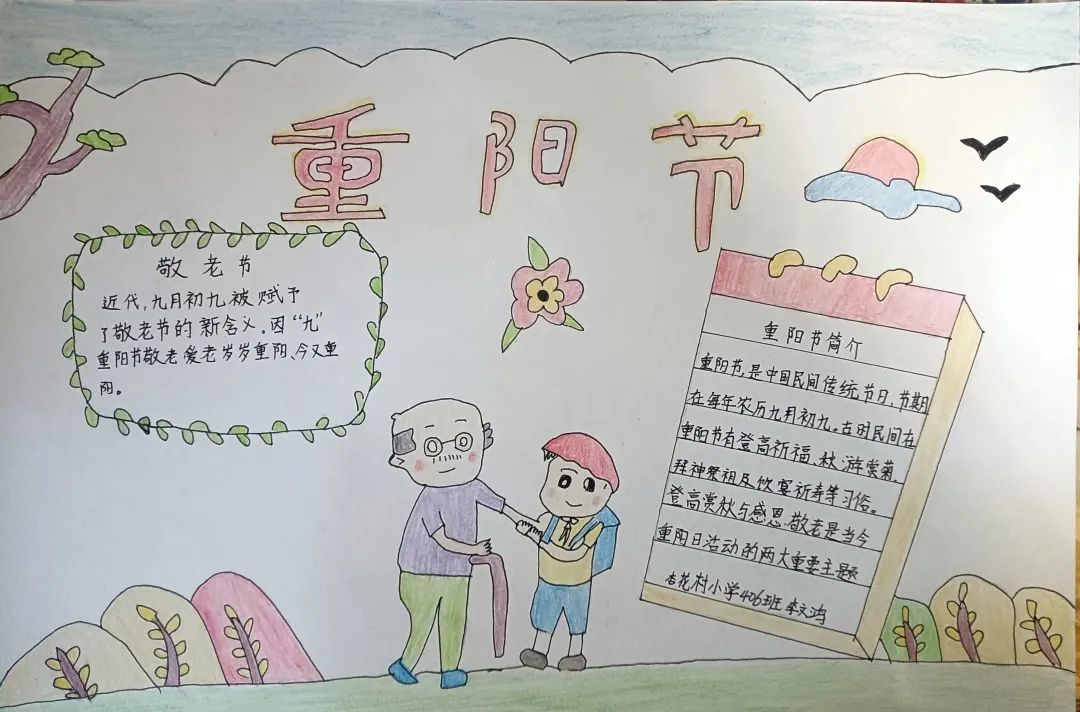 重阳节
敬老节
近代,九月初九被赋予
了敬老节的新含义。因“九”
重阳节敬老爱老岁岁重阳、今又重
阳。
重阳节简介
重阳节,是中国民间传统节日,节期
在每年农历九月初九。在时民间在
重阳节有登高祈福、秋游赏菊、
拜神祭祖及饮宴祈寿等习俗。
登高赏秋与感恩敬老是当今
重阳日活动的两大重要主题
杏花村小学406班 李文鸿